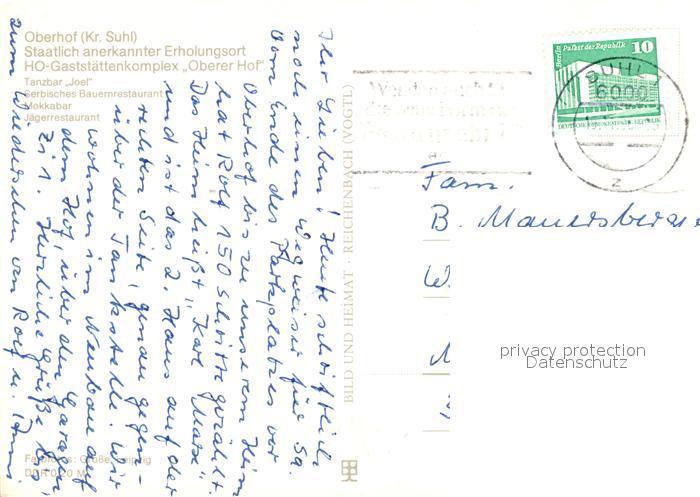 Oberhof (Kr. Suhl)
Staatlich anerkannter Erholungsort
HO-Gaststättenkomplex „Oberer Hof“
Tanzbar „Joel“
Serbisches Bauernrestaurant
Mokkabar
Jägerrestaurant
Ihr Lieben! Heute schriftlich
noch einen Wegweiser für Sa.
Vom Ende des Parkplatzes vor
Oberhof bis zu unserem Heim
hat Rolf 150 Schritte gezählt.
Das Heim heißt „Karl Marx“
und ist das 2. Haus auf der
rechten Seite, genau gegen-
über der Tankstelle. Wir
wohnen im Neubau auf
dem Hof, über den Garagen
Zi 1. Herzliche Grüße bis
zum Wiedersehen von Rolf u.
DDR 0,20 M
BILD UND HEIMAT · REICHENBACH (VOGTL)
Berlin, Palast der Republik
10
DEUTSCHE DEMOKRATISCHE REPUBLIK
SUHL
6000
z
Fam.
B. Mauersberger
W.
privacy protection
Datenschutz